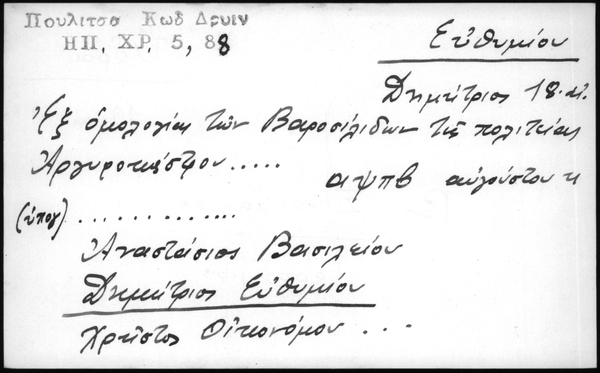 Πουλιτσα Κωδ Δρυιν
ΗΠ. ΧΡ. 5, 88
Εὐθυμίου
Δημήτριος 18. αἰ.
Ἐξ ὁμολογίας τῶν Βαροσιλιδων τῆς πολιτείας
Ἀργυροκάστρου .....
αψπβ αὐγούστου κ
(ὑπογ) .............
Ἀναστάσιος Βασιλείου
Δημήτριος Εὐθυμίου
Χρῆστος Οἰκονόμου ...